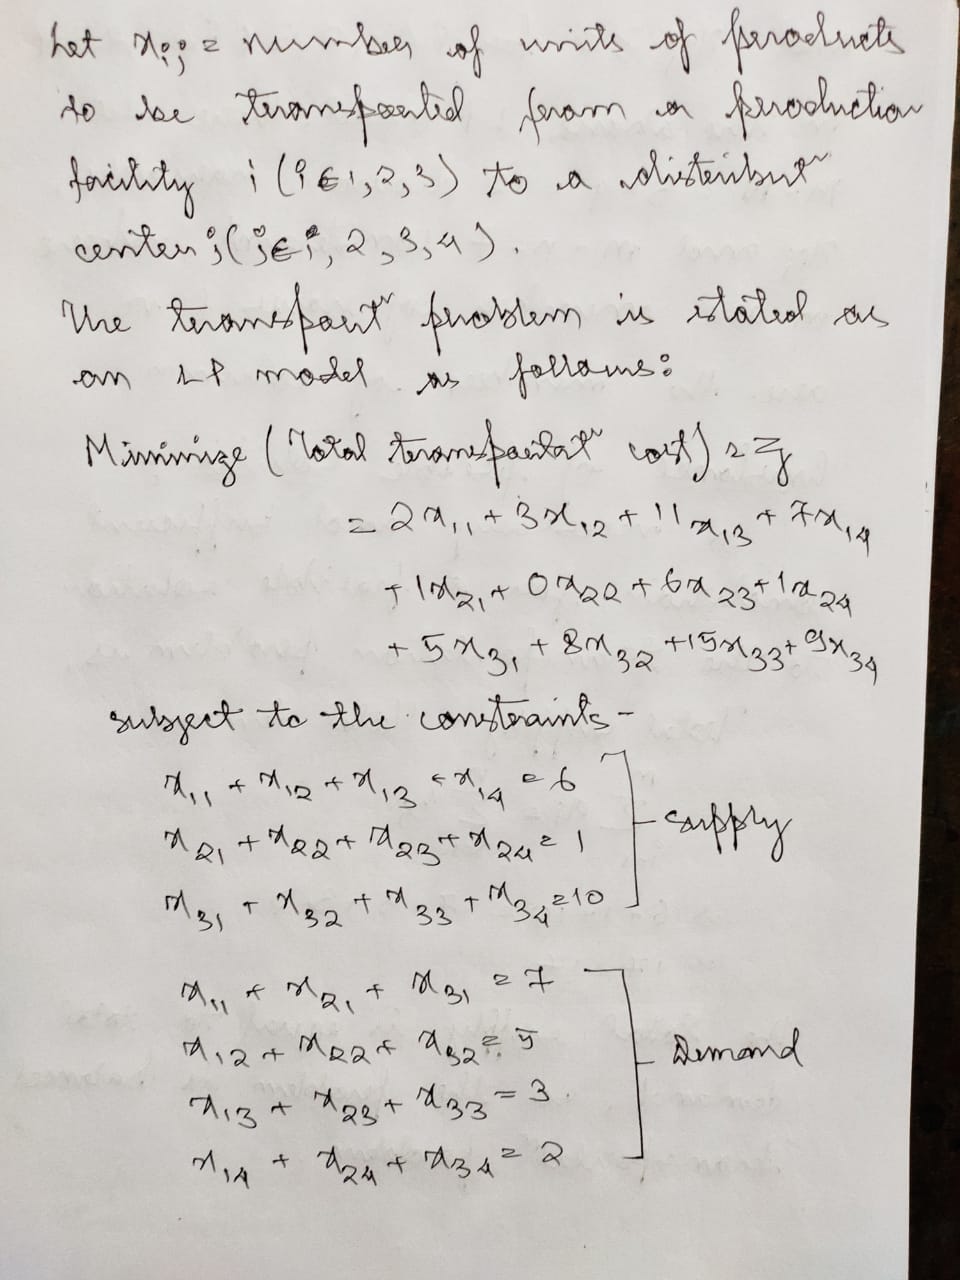 Let xij = number of units of products
to be transported from a production
facility i (i∈1,2,3) to a distributⁿ
center j (j∈1, 2, 3, 4).
The transportⁿ problem is stated as
an LP model as follows:
Minimize (Total transportatⁿ cost) = Z
= 2x₁₁ + 3x₁₂ + 11x₁₃ + 7x₁₄
+ 1x₂₁ + 0x₂₂ + 6x₂₃ + 1x₂₄
+ 5x₃₁ + 8x₃₂ + 15x₃₃ + 9x₃₄
subject to the constraints -
x₁₁ + x₁₂ + x₁₃ + x₁₄ = 6
x₂₁ + x₂₂ + x₂₃ + x₂₄ = 1
Supply
x₃₁ + x₃₂ + x₃₃ + x₃₄ = 10
x₁₁ + x₂₁ + x₃₁ = 7
x₁₂ + x₂₂ + x₃₂ = 5
Demand
x₁₃ + x₂₃ + x₃₃ = 3
x₁₄ + x₂₄ + x₃₄ = 2